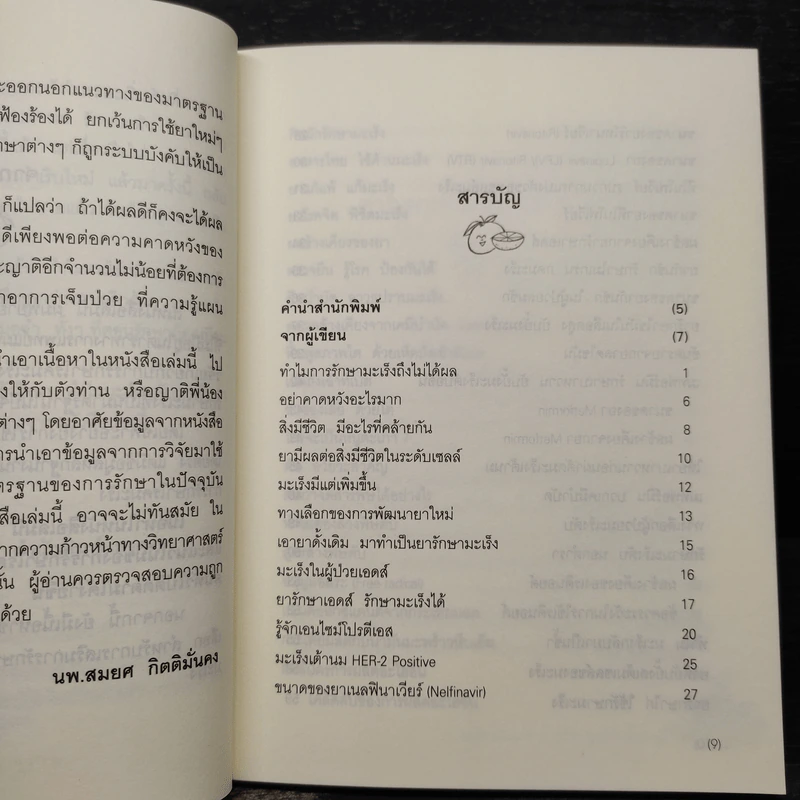 ะออกนอกแนวทางของมาตรฐาน
ฟ้องร้องได้ ยกเว้นการใช้ยาใหม่ๆ
ษาต่างๆ ก็ถูกระบบบังคับให้เป็น
ก็แปลว่า ถ้าได้ผลดีก็คงจะได้ผล
ดีเพียงพอต่อความคาดหวังของ
ะญาติอีกจำนวนไม่น้อยที่ต้องการ
าอาการเจ็บป่วย ที่ความรู้แผน
นำเอาเนื้อหาในหนังสือเล่มนี้ ไป
งให้กับตัวท่าน หรือญาติพี่น้อง
ต่างๆ โดยอาศัยข้อมูลจากหนังสือ
การนำเอาข้อมูลจากการวิจัยมาใช้
ตรฐานของการรักษาในปัจจุบัน
สือเล่มนี้ อาจจะไม่ทันสมัย ใน
ากความก้าวหน้าทางวิทยาศาสตร์
นั้น ผู้อ่านควรตรวจสอบความถูก
ด้วย
นพ.สมยศ กิตติมั่นคง
สารบัญ
คำนำสำนักพิมพ์ (5)
จากผู้เขียน (7)
ทำไมการรักษามะเร็งถึงไม่ได้ผล 1
อย่าคาดหวังอะไรมาก 6
สิ่งมีชีวิต มีอะไรที่คล้ายกัน 8
ยามีผลต่อสิ่งมีชีวิตในระดับเซลล์ 10
มะเร็งมีแต่เพิ่มขึ้น 12
ทางเลือกของการพัฒนายาใหม่ 13
เอายาดั้งเดิม มาทำเป็นยารักษามะเร็ง 15
มะเร็งในผู้ป่วยเอดส์ 16
ยารักษาเอดส์ รักษามะเร็งได้ 17
รู้จักเอนไซม์โปรตีเอส 20
มะเร็งเต้านม HER-2 Positive 25
ขนาดของยาเนลฟินาเวียร์ (Nelfinavir) 27
(9)